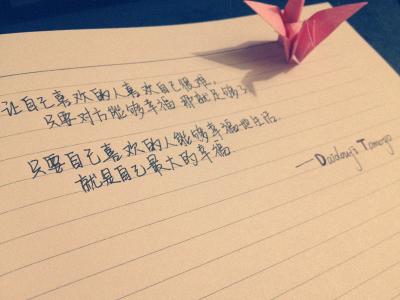 让自己喜欢的人喜欢自己很难.
只要对方能够幸福 那就足够了
只要自己喜欢的人能够幸福地生活.
就是自己最大的幸福
—Daidouji Tomoyo